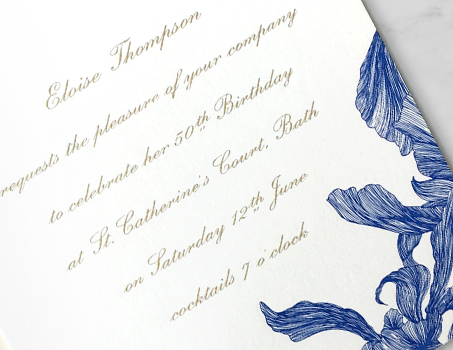 Eloise Thompson
requests the pleasure of your company
to celebrate her 50th Birthday
at St. Catherine's Court, Bath
on Saturday 12th June
cocktails 7 o'clock